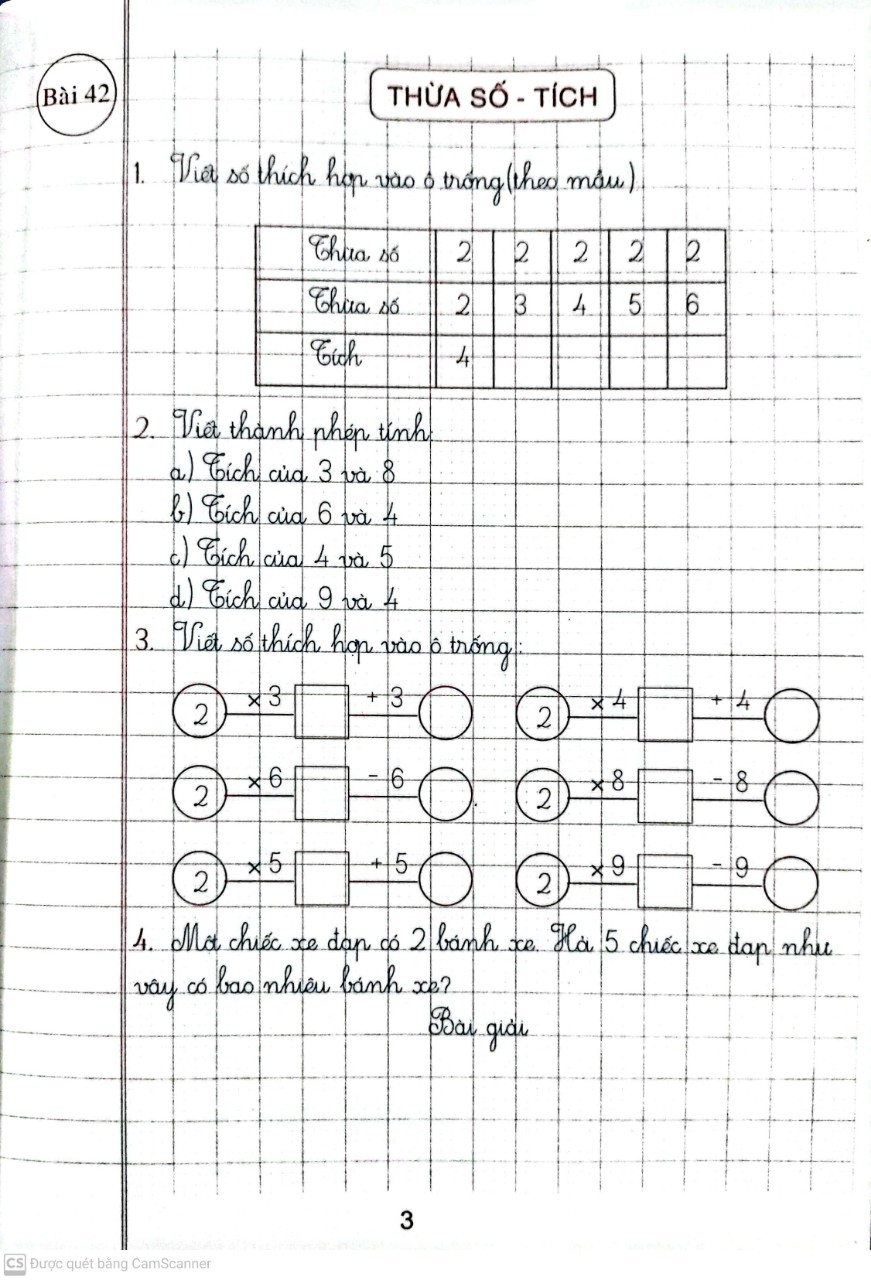 Bài 42
THỪA SỐ - TÍCH
1. Viết số thích hợp vào ô trống (theo mẫu)
Thừa số 2 2 2 2 2
Thừa số 2 3 4 5 6
Tích 4
2. Viết thành phép tính:
a) Tích của 3 và 8
b) Tích của 6 và 4
c) Tích của 4 và 5
d) Tích của 9 và 4
3. Viết số thích hợp vào ô trống:
2 × 3 + 3 2 × 4 + 4
2 × 6 - 6 2 × 8 - 8
2 × 5 + 5 2 × 9 - 9
4. Một chiếc xe đạp có 2 bánh xe. Hỏi 5 chiếc xe đạp như
vậy có bao nhiêu bánh xe?
Bài giải
3
CS Được quét bằng CamScanner